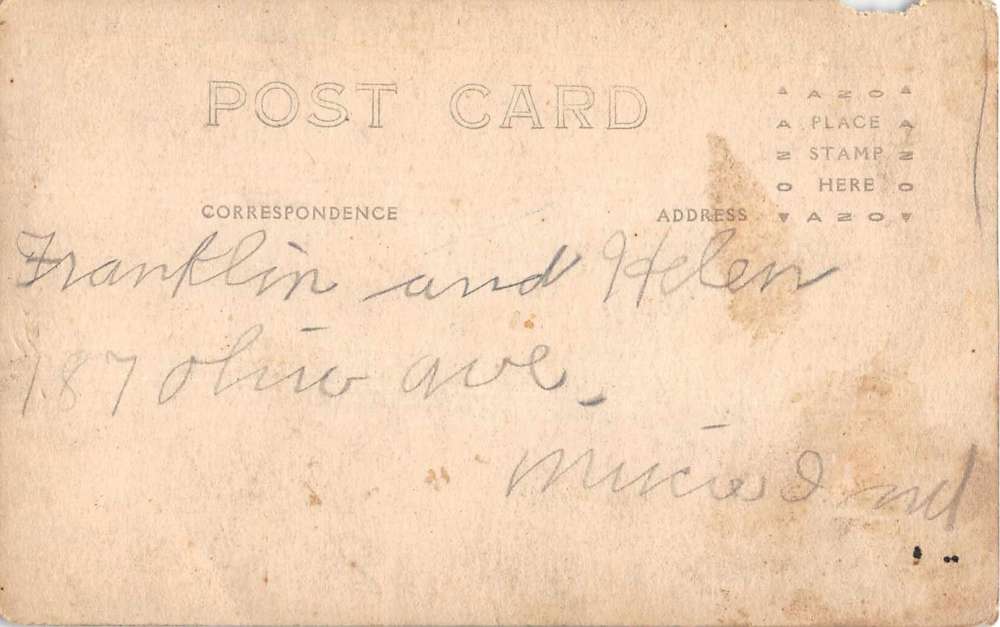 POST CARD
AZO
A PLACE A
Z STAMP Z
O HERE O
AZO
CORRESPONDENCE ADDRESS
Franklin and Helen
787 Ohio ave.
Muncie Ind